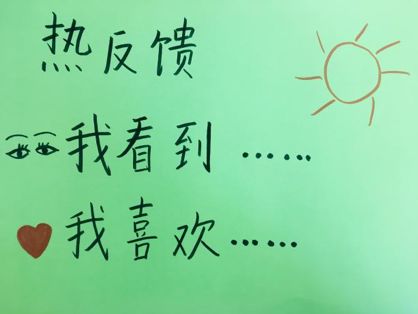 热反馈
我看到……
我喜欢……